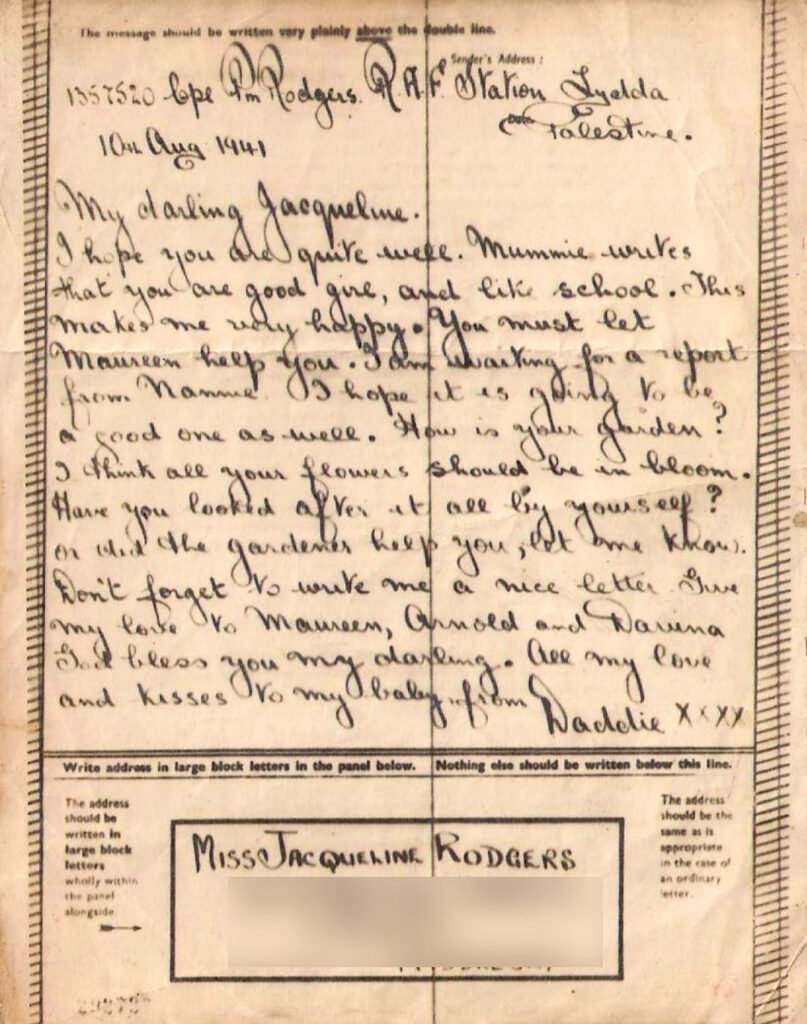 The message should be written very plainly above the double line.
Sender's Address :
1357520 Cpl Pm Rodgers. R.A.F Station Lydda
Palestine.
10th Aug 1941
My darling Jacqueline.
I hope you are quite well. Mummie writes
that you are good girl, and like school. This
makes me very happy. You must let
Maureen help you. I am waiting for a report
from Nannie I hope it is going to be
a good one as well. How is your garden?
I think all your flowers should be in bloom.
Have you looked after it all by yourself?
or did the gardener help you, let me know.
Don't forget to write me a nice letter Give
my love to Maureen, Arnold and Davina
God bless you my darling. All my love
and kisses to my baby, from
Daddie XXXX
Write address in large block letters in the panel below.
Nothing else should be written below this line.
The address
should be
written in
large block
letters
wholly within
the panel
alongside
MISS JACQUELINE RODGERS
The address
should be the
same as is
appropriate
in the case of
an ordinary
letter.